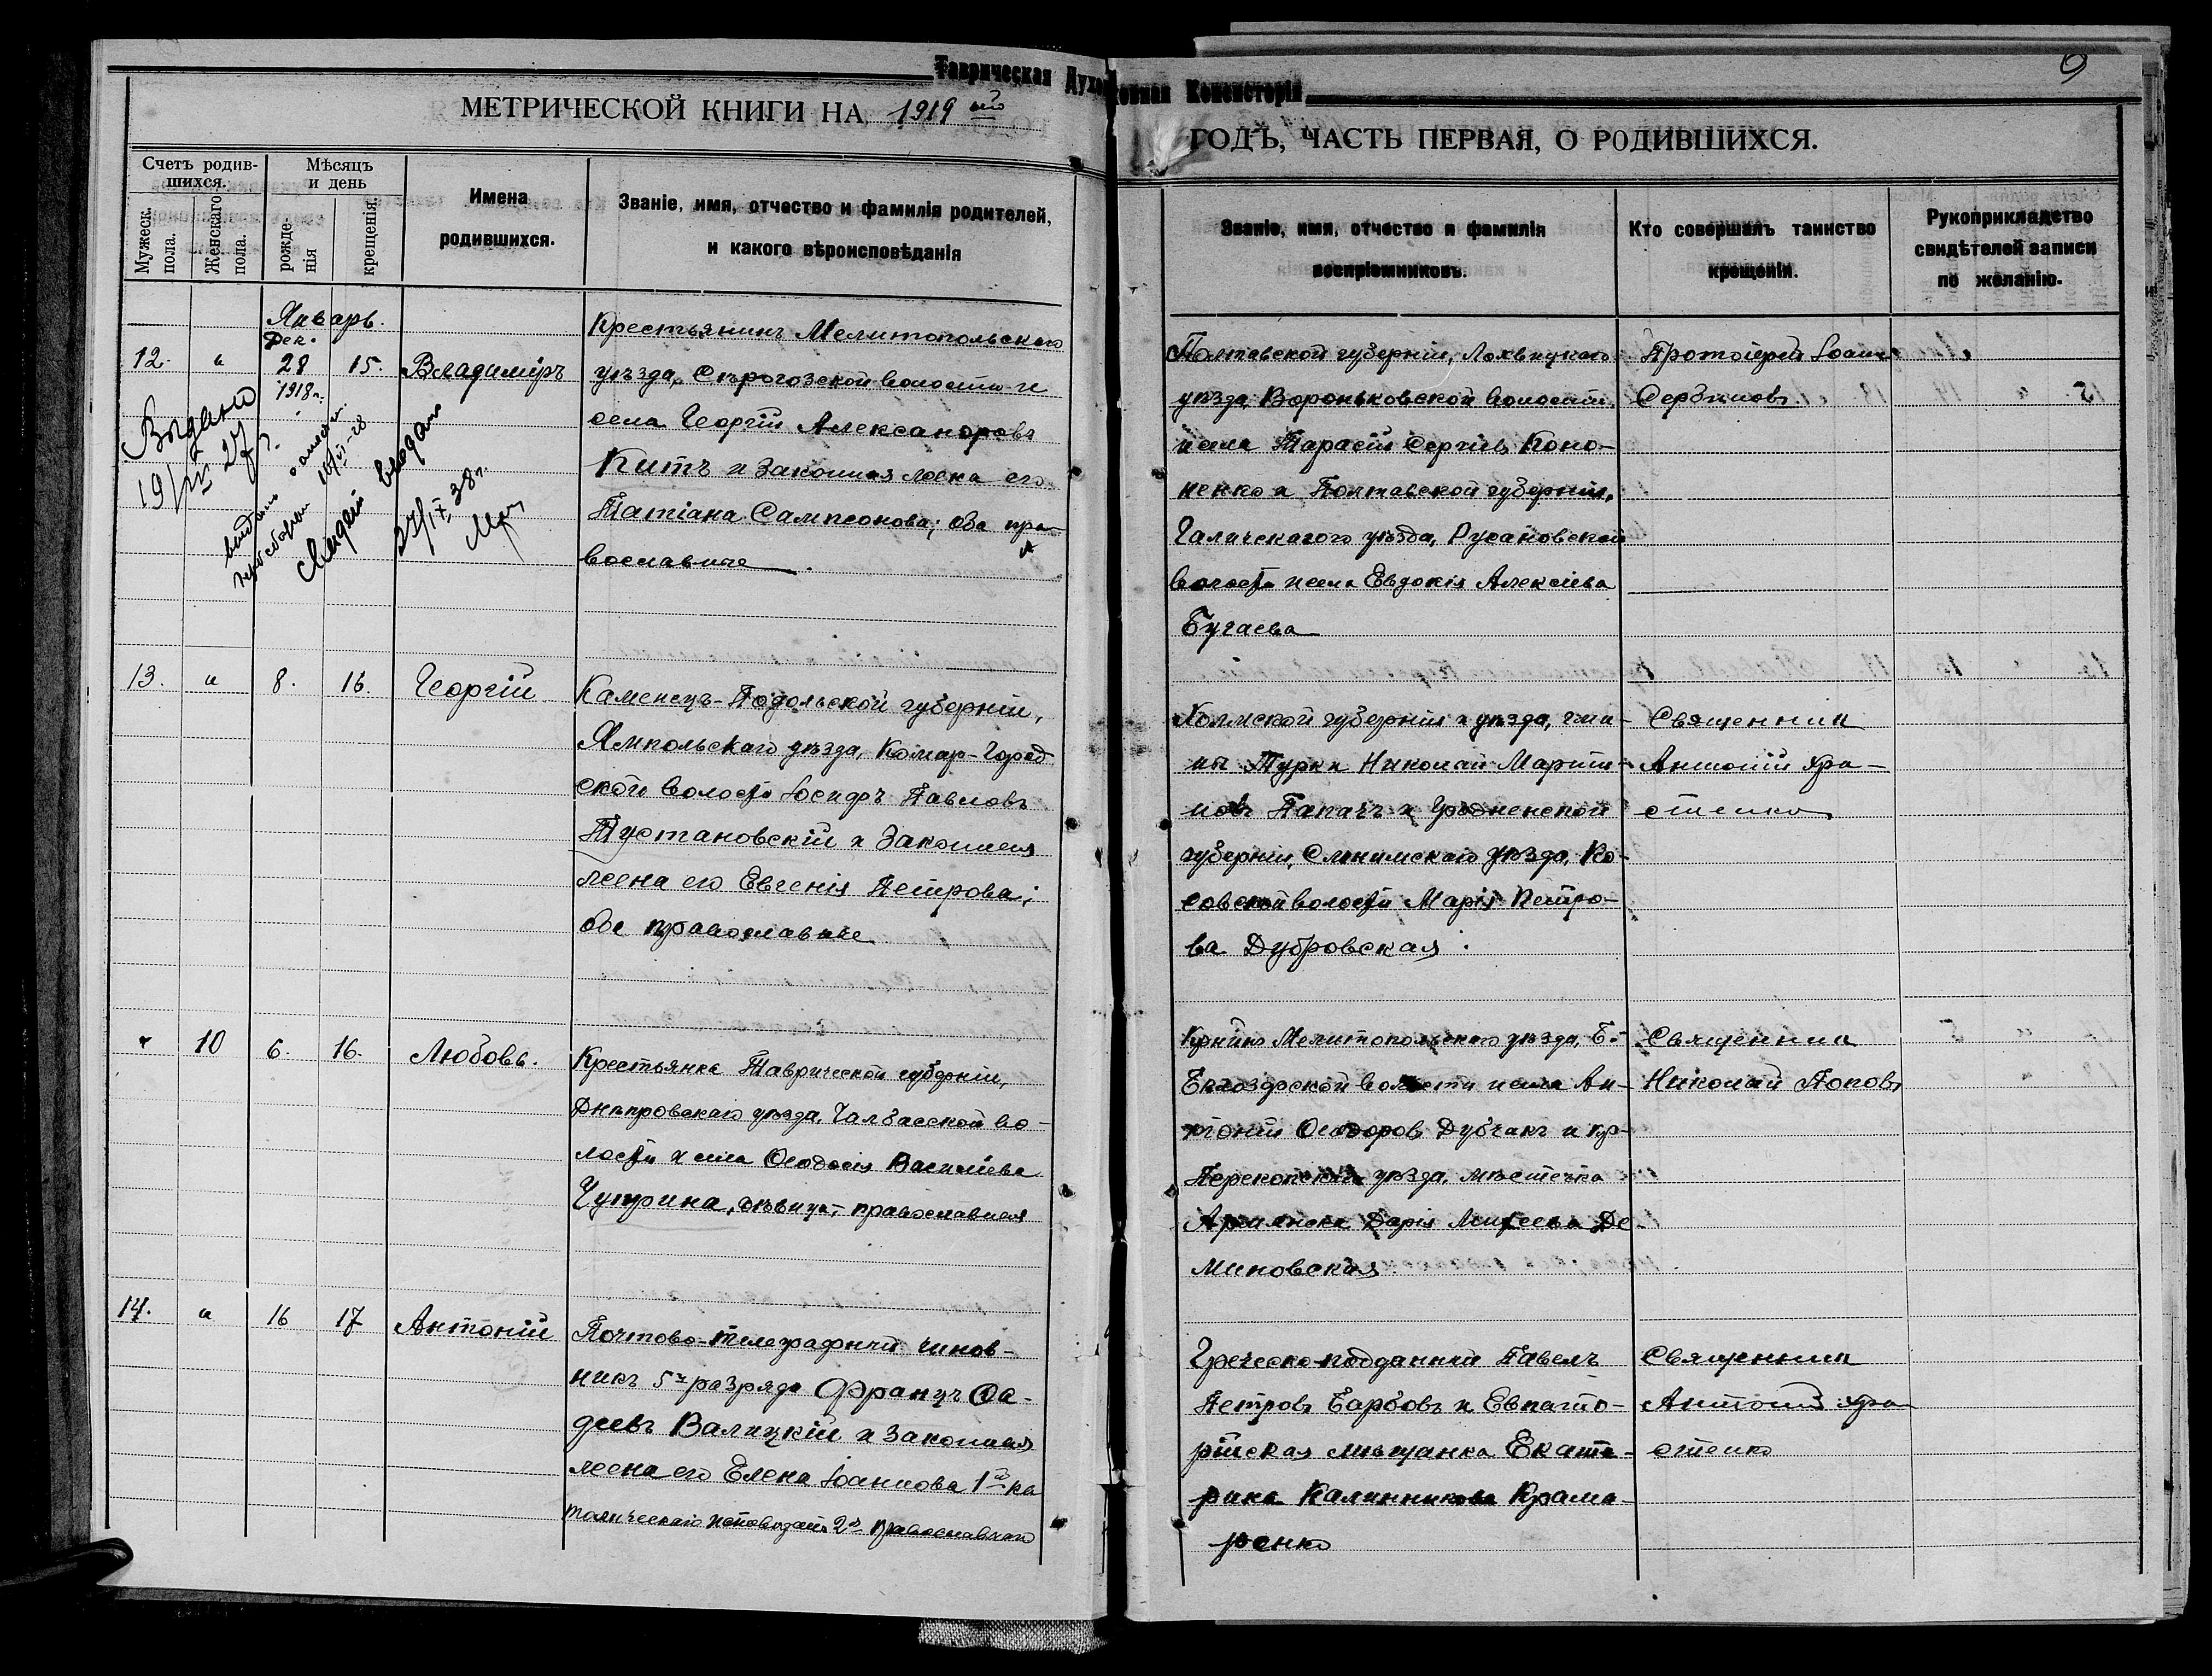 Таврическая Духовная Консисторія
9
МЕТРИЧЕСКОЙ КНИГИ НА 1919 ый
ГОДЪ, ЧАСТЬ ПЕРВАЯ, О РОДИВШИХСЯ.
Счетъ родив-
шихся.
Мужеск. пола.
Женскаго пола.
Мѣсяцъ
и день
рожде-
нія
крещенія.
Имена
родившихся.
Званіе, имя, отчество и фамилія родителей,
и какого вѣроисповѣданія
Званіе, имя, отчество и фамилія
воспріемниковъ.
Кто совершалъ таинство
крещенія.
Рукоприкладство
свидѣтелей записи
по желанію.
Январь.
12. " Дек. 28 1918 г. 15. Владиміръ
Крестьянинъ Мелитопольскаго
уѣзда, Сѣрогозской волости и
села Георгій Александровъ
Китъ и законная жена его
Татіана Сампсонова; оба пра-
вославные
Полтавской губерніи, Лохвицкаго
уѣзда, Вороньковской волости,
и села Тарасій Сергіевъ Коно-
ненко и Полтавской губерніи,
уѣзда, Русановской
волости и села Евдокія Алексіева
Бугаева
Протоіерей Іоаннъ
Сербиновъ
Выдано
19/IV 27 г.
выдан
выдан
27/IX 38 г.
13. " 8. 16. Георгій
Каменецъ-Подольской губерніи,
Ямпольскаго уѣзда, Комар-Город
ской волости Іосифъ Павловъ
Тустановскій и законная
жена его Евгенія Петрова;
оба православные
Холмской губерніи и уѣзда, гми-
ны Турка Николай Марти-
новъ Папачъ и Гродненской
губерніи, Слонимскаго уѣзда, Ко-
совской волости Марія Петро-
ва Дубровская.
Священникъ
Антоній Хра-
стенко
" 10 6. 16. Любовь.
Крестьянка Таврической губерніи,
Днѣпровскаго уѣзда, Чалбасской во-
лости и села Ѳеодосія Васильева
Чуприна, дѣвица, православная
Кр-нинъ Мелитопольскаго уѣзда, Б.-
волости и села Ан-
тоній Ѳеодоровъ Дубчакъ и кр-
Перекопскаго уѣзда, мѣстечка
Армянска Дарія Михеева Де-
миновская.
Священникъ
Николай Поповъ
14. " 16 17 Антоній
Почтово-телеграфный чинов-
никъ 5го разряда Францъ Ѳа-
деевъ Валицкій и законная
жена его Елена Іоаннова 1й ка
толическаго исповѣданія 2я православнаго
Греческо-подданный Павелъ
Петровъ Барбовъ и Евпато-
рійская мѣщанка Екате-
рина Калинникова Крама-
ренко
Священникъ
Антоній Хра
стенко